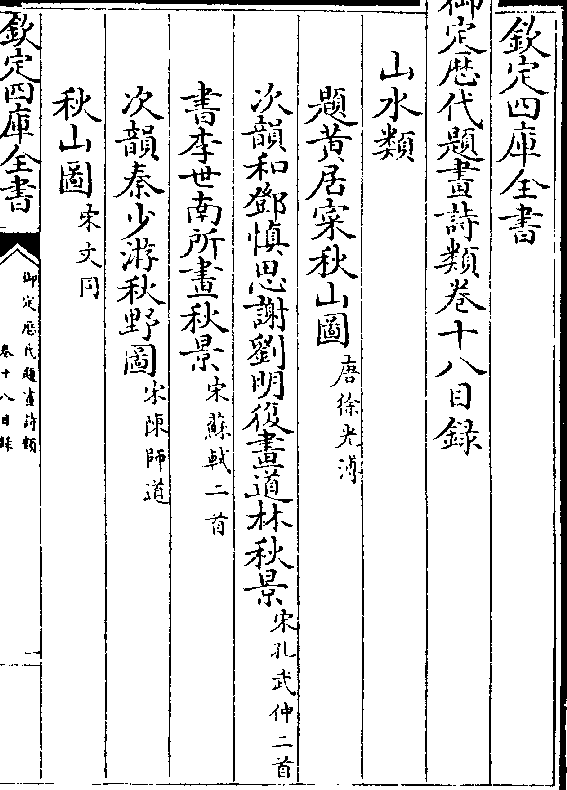 欽定四庫全書
御定歴代題畫詩類卷十八目録
山水類
題黄居寀秋山圖 唐徐光溥
次韻和鄧慎思謝劉明復畫道林秋景 宋孔武仲二首
書李世南所畫秋景 宋蘇軾二首
次韻秦少游秋野圖 宋陳師道
秋山圖 宋文同
欽定四庫全書
御定歴代題畫詩類
卷十八目録
一